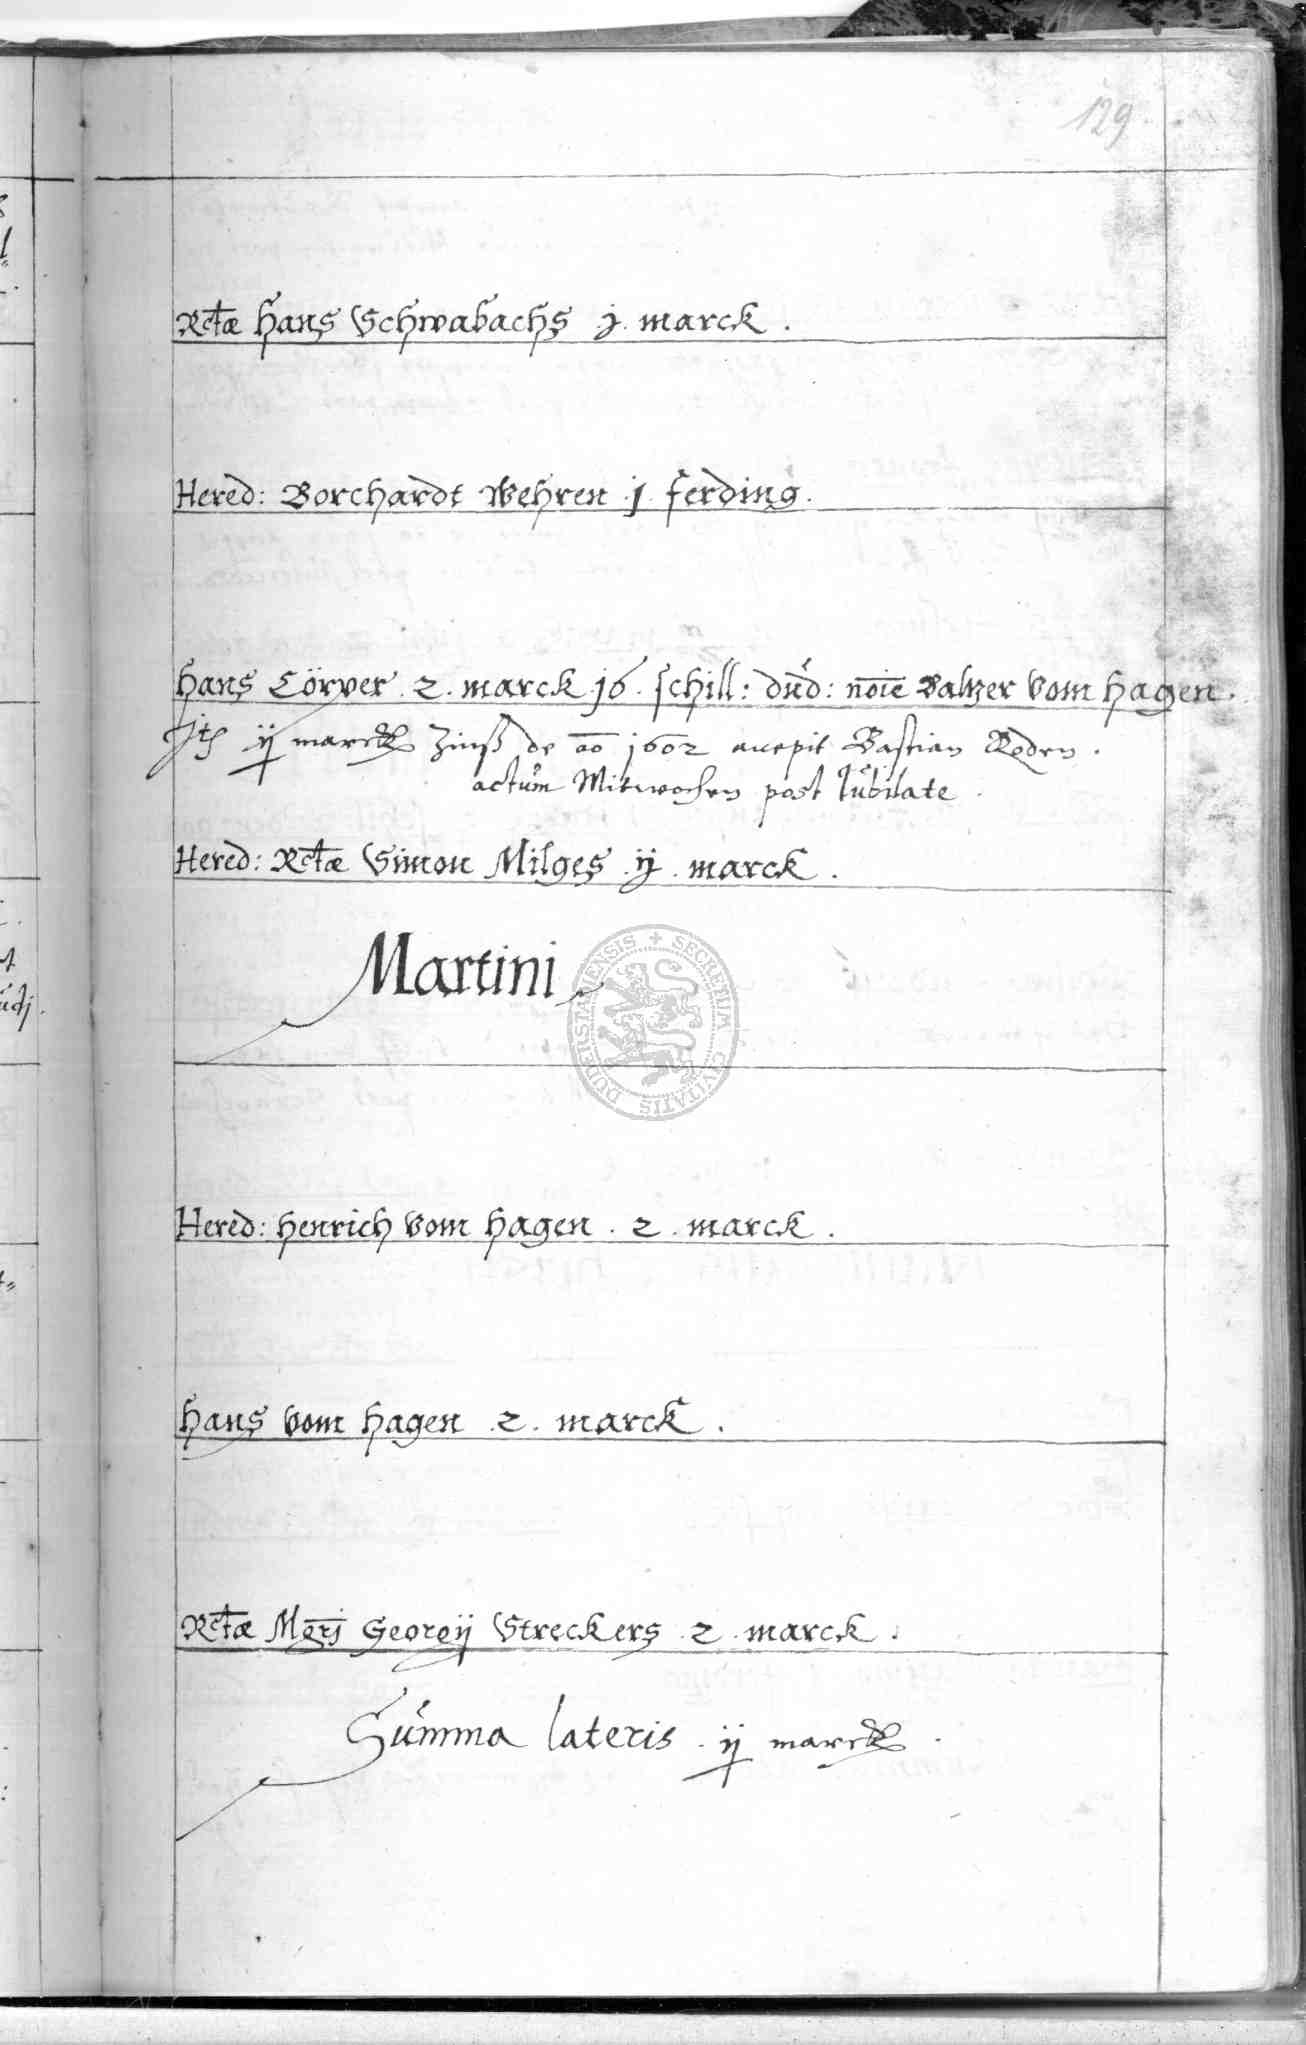 129
Rctæ Hans Schwabachs .j. marck .
Hered: Borchardt Wehren .j. ferding.
Hans Cörver . 2 . marck 16 . schill: dnd: noie Baltzer vom Hagen .
Ith ij marck Zinß de ao 1602 accepit Bastian Roden .
actum Mitwochen post Jubilate .
Hered: Rctæ Simon Milges .ij. marck .
Martini
SECRETUM CIVITATIS DUDERSTADIENSIS
Hered: Henrich vom Hagen . 2 . marck .
Hans vom Hagen . 2 . marck .
Rctæ Mgrj Georgij Streckers . 2 . marck .
Summa lateris . ij marck .